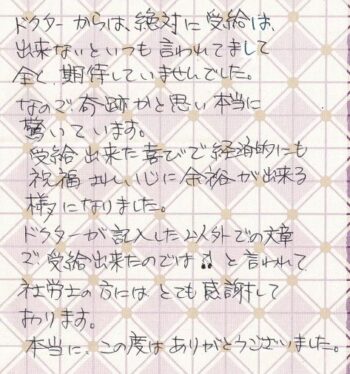 ドクターからは、絶対に受給は、
出来ないといつも言われてまして
全く期待していませんでした。
なので奇跡かと思い本当に
驚いています。
受給出来た喜びで経済的にも
祝福され、心に余裕が出来る
様になりました。
ドクターが記入した以外での文章
で受給出来たのでは!!と言われて
社労士の方にはとても感謝して
おります。
本当に、この度はありがとうございました。